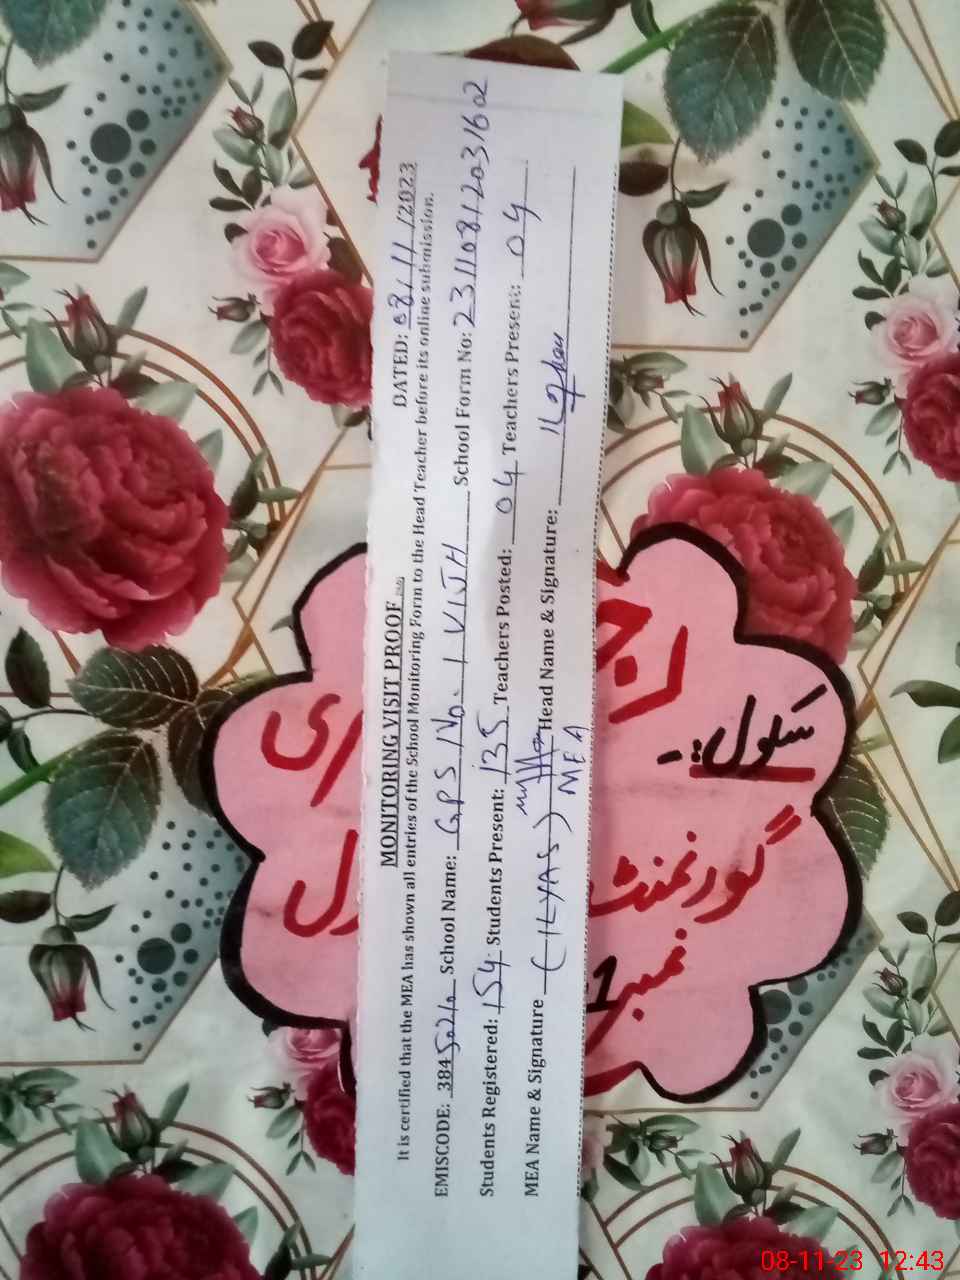 MONITORING VISIT PROOF
DATED: 08/11/2023
It is certified that the MEA has shown all entries of the School Monitoring Form to the Head Teacher before its online submission.
EMISCODE: 384 School Name: GPS No. 1 VIJH School Form No: 23110812031602
Students Registered: 154 Students Present: 135 Teachers Posted: 04 Teachers Present: 04
MEA Name & Signature (ILYAS) Head Name & Signature:
MEA
سکول:-
گورنمنٹ
نمبر 1
08-11-23 12:43